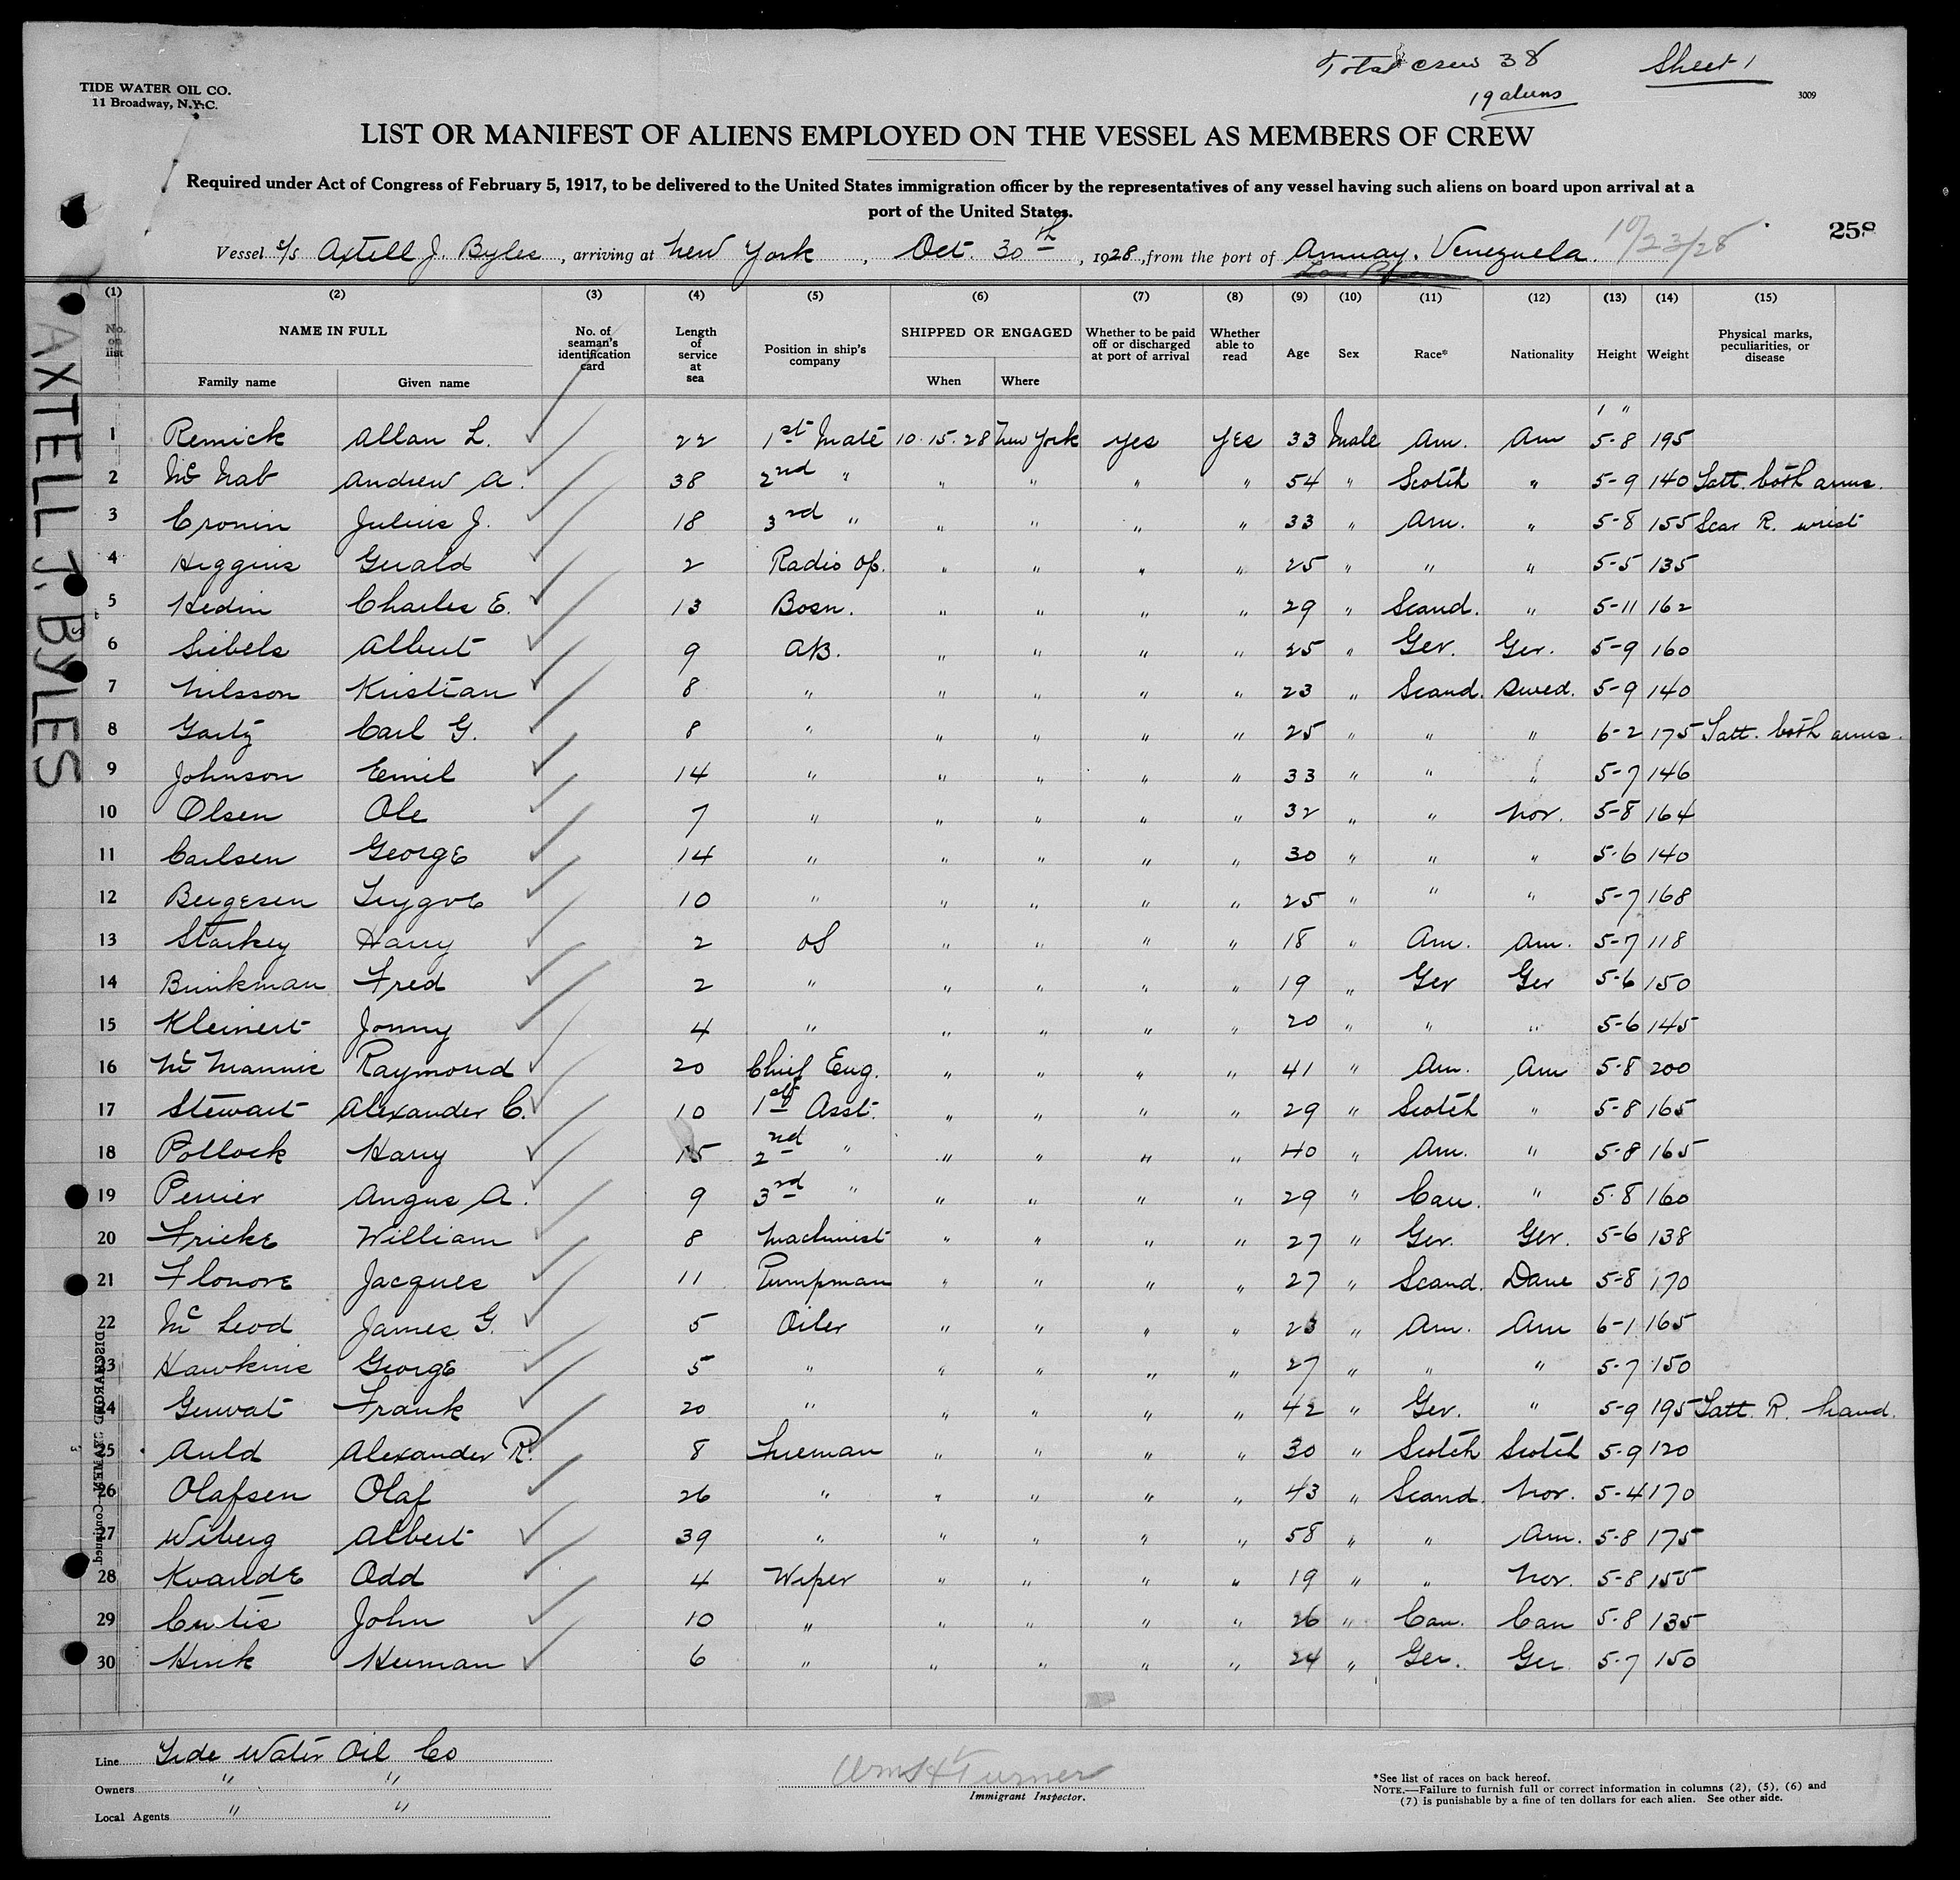 Total crew 38
Sheet 1
19 aliens
3009
TIDE WATER OIL CO.
11 Broadway, N.Y.C.
LIST OR MANIFEST OF ALIENS EMPLOYED ON THE VESSEL AS MEMBERS OF CREW
Required under Act of Congress of February 5, 1917, to be delivered to the United States immigration officer by the representatives of any vessel having such aliens on board upon arrival at a
port of the United States.
258
Vessel s/s Axtell J. Byles, arriving at New York, Oct. 30th, 1928, from the port of Amuay, Venezuela. 10/23/28
AXTELL J. ByLES
(1) (2) (3) (4) (5) (6) (7) (8) (9) (10) (11) (12) (13) (14) (15)
No. on list NAME IN FULL No. of seaman's identification card Length of service at sea Position in ship's company SHIPPED OR ENGAGED Whether to be paid off or discharged at port of arrival Whether able to read Age Sex Race* Nationality Height Weight Physical marks, peculiarities, or disease
Family name Given name When Where
1 Remick Allan L. 22 1st Mate 10.15.28 New York yes yes 33 Male Am. Am 5-8 195
2 McNab Andrew A. 38 2nd " " " " " 54 " Scotch " 5-9 140 Tatt. both arms.
3 Cronin Julius J. 18 3rd " " " " " 33 " Am. " 5-8 155 Scar R. wrist
4 Higgins Gerald 2 Radio Op. " " " " 25 " " " 5-5 135
5 Hedin Charles E. 13 Bosn. " " " " 29 " Scand. " 5-11 162
6 Siebels Albert 9 AB. " " " " 25 " Ger. Ger. 5-9 160
7 Nilsson Kristian 8 " " " " " 23 " Scand. Swed. 5-9 140
8 Gartz Carl G. 8 " " " " " 25 " " " 6-2 175 Tatt. both arms.
9 Johnson Emil 14 " " " " " 33 " " " 5-7 146
10 Olsen Ole 7 " " " " " 32 " " Nor. 5-8 164
11 Carlsen George 14 " " " " " 30 " " " 5-6 140
12 Bergesen Trygve 10 " " " " " 25 " " " 5-7 168
13 Starkey Harry 2 OS " " " " 18 " Am. Am. 5-7 118
14 Brinkman Fred 2 " " " " " 19 " Ger Ger 5-6 150
15 Kleinert Jonny 4 " " " " " 20 " " " 5-6 145
16 McMannis Raymond 20 Chief Eng. " " " " 41 " Am. Am 5-8 200
17 Stewart Alexander C. 10 1st Asst. " " " " 29 " Scotch " 5-8 165
18 Pollock Harry 15 2nd " " " " " 40 " Am. " 5-8 165
19 Perrier Angus A. 9 3rd " " " " " 29 " Can. " 5-8 160
20 Fricke William 8 Machinist " " " " 27 " Ger. Ger. 5-6 138
21 Flonore Jacques 11 Pumpman " " " " 27 " Scand. Dane 5-8 170
22 McLeod James G. 5 Oiler " " " " 23 " Am. Am 6-1 165
23 Hawkins George 5 " " " " " 27 " " " 5-7 150
24 Frank 20 " " " " " 42 " Ger. " 5-9 195 Tatt. R. hand.
25 Auld Alexander R. 8 Fireman " " " " 30 " Scotch Scotch 5-9 120
26 Olafsen Olaf 26 " " " " " 43 " Scand. Nor. 5-4 170
27 Wiberg Albert 39 " " " " " 58 " " Am. 5-8 175
28 Kvande Odd 4 Wiper " " " " 19 " " Nor. 5-8 155
29 Curtis John 10 " " " " " 26 " Can. Can 5-8 135
30 Hink Herman 6 " " " " " 24 " Ger. Ger. 5-7 150
Line Tide Water Oil Co
Owners " "
Local Agents " "
Immigrant Inspector.
*See list of races on back hereof.
NOTE.—Failure to furnish full or correct information in columns (2), (5), (6) and
(7) is punishable by a fine of ten dollars for each alien. See other side.